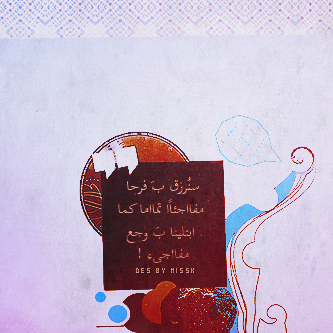 سنُرزق بَ فرحا
مفااجئاًا تمااما كما
ابتلينا بَ وجع
مفااجىء !
DES BY MISSK